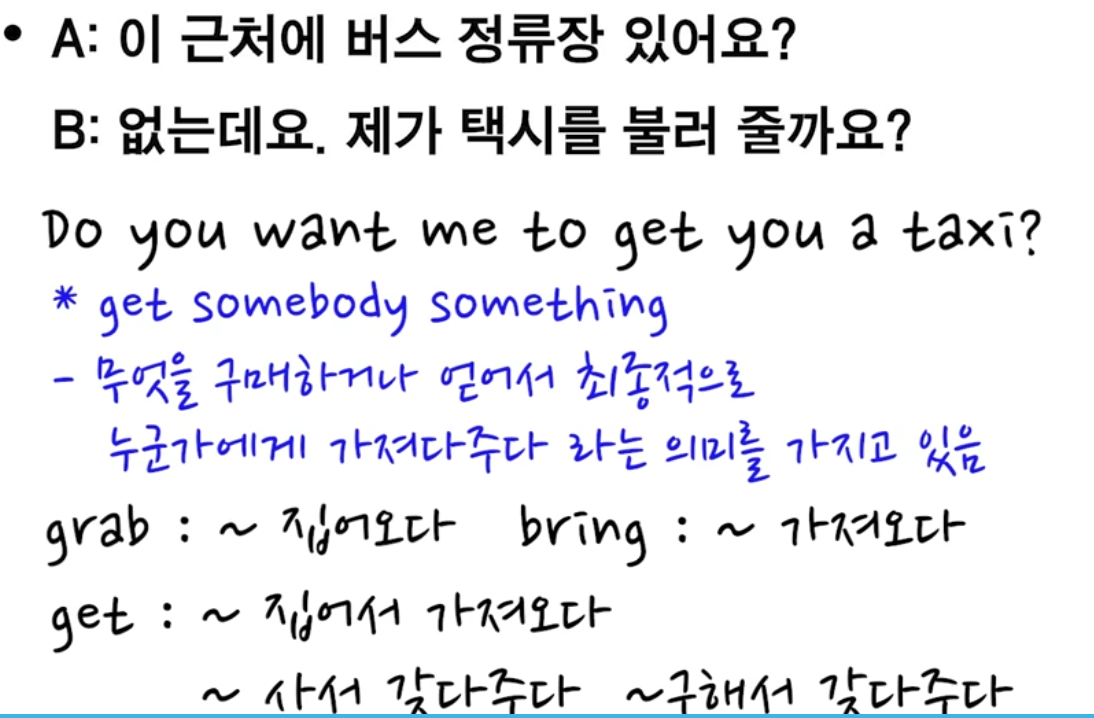 • A: 이 근처에 버스 정류장 있어요?
B: 없는데요. 제가 택시를 불러 줄까요?
Do you want me to get you a taxi?
* get somebody something
- 무엇을 구매하거나 얻어서 최종적으로
누군가에게 가져다주다 라는 의미를 가지고 있음
grab : ~ 집어오다 bring : ~ 가져오다
get : ~ 집어서 가져오다
~ 사서 갖다주다 ~구해서 갖다주다